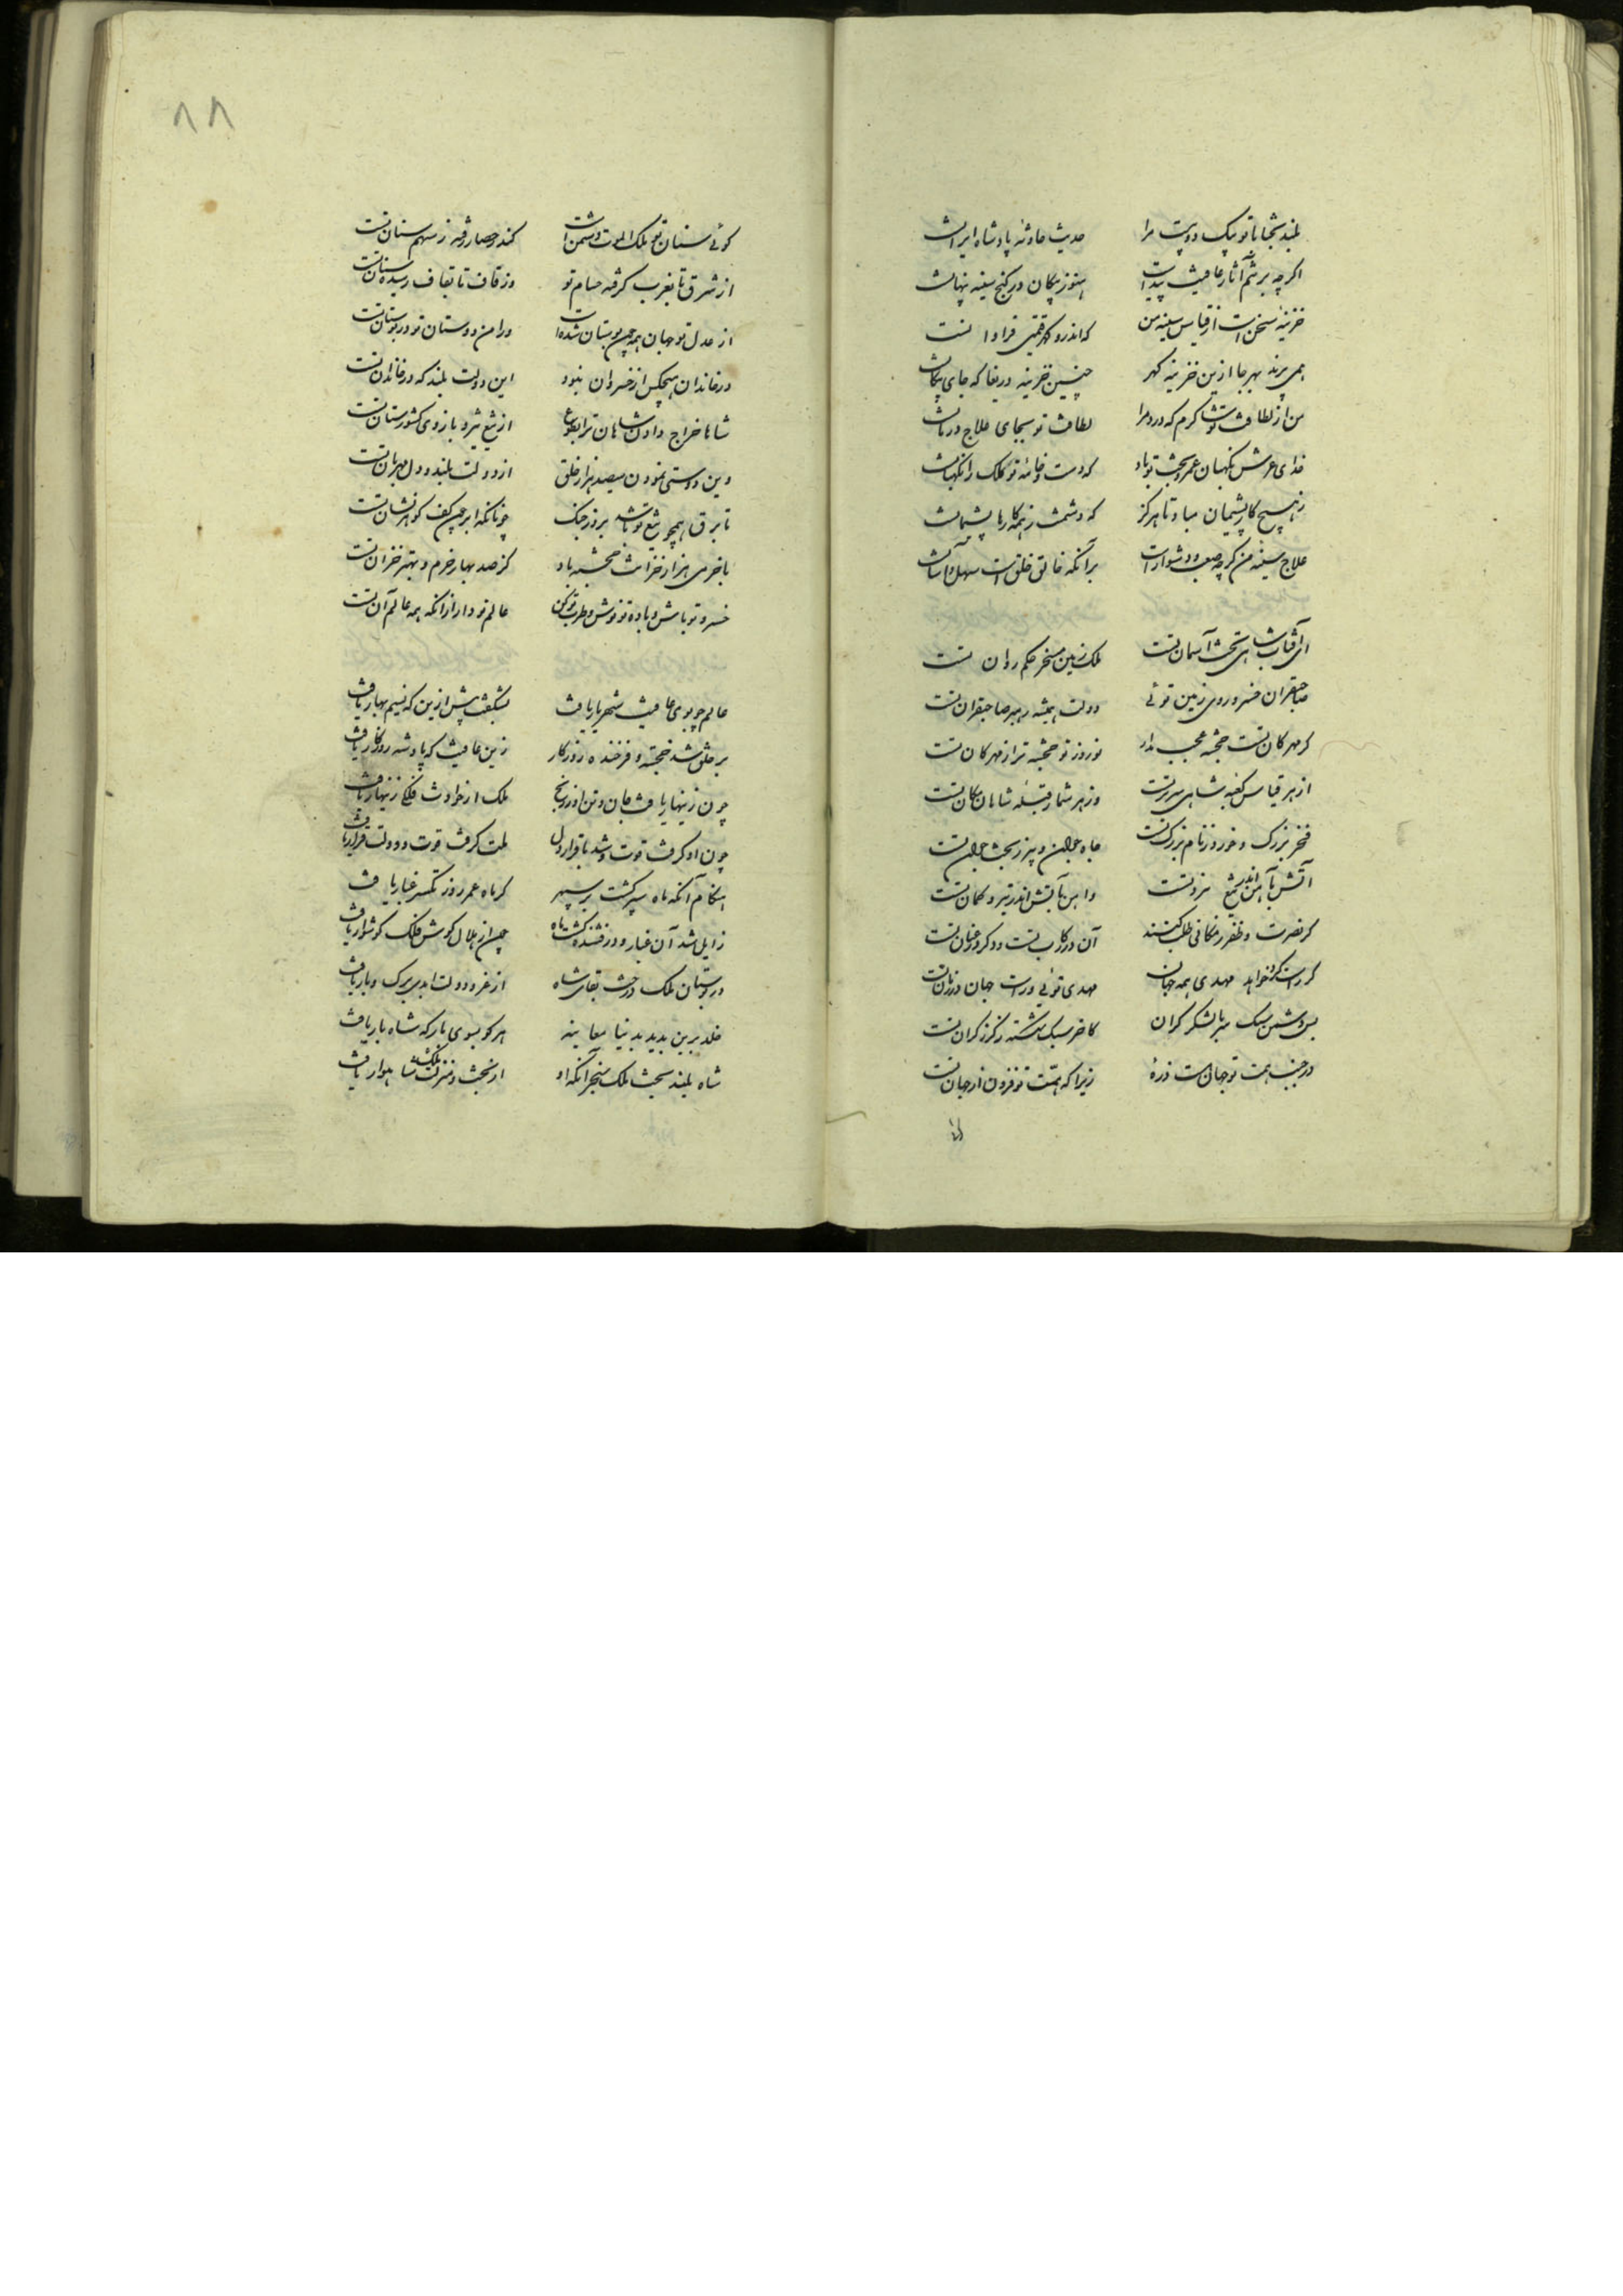 بلند بختا با تو نیک دوست مرا
حدیث حادثه پادشاه ایرانست
اگرچه بر تنم آثار عافیت پیداست
هنوز پیکان در کنج سینه پنهانست
خزینه سخن است از قیاس سینه من
که اندرو گهر قیمتی فراوانست
همی برند بهر جا ازین خزینه گهر
چنین خزینه دریغا که جای پیکانست
من از لطافت تو شاکرم که درد مرا
لطافت تو بجای علاج درمانست
خدای عرش نگهبان عمر و بخت تو باد
که دست و خامه تو ملک را نگهبانست
ز هیچ کار پشیمان مباد تا هرگز
که دشمنت ز همه کارها پشیمانست
علاج سینه من گرچه صعب و دشوارست
بر آنکه خالق خلق است سهل و آسانست
ای آفتاب شاهی تخت آسمان تست
ملک زمین مسخر حکم روان تست
صاحبقران خسرو روی زمین توئی
دولت همیشه رهبر صاحبقران تست
گر مهرگان تست خجسته عجب مدار
نوروز تو خجسته تر از مهرگان تست
از هر قیاس کعبه شاهی سریر تست
وز هر شمار قبله شاهان مکان تست
فخر بزرگ و خورد ز نام بزرگ تست
جاه جوان و پیر ز بخت جوان تست
آتش بآهن اندر تیغ نبرد تست
و آهن بآتش اندر تیر و کمان تست
گر نصرت و ظفر ز مکانی طلب کنند
آن در رکاب تست و دگر در عنان تست
گر راست کرد خواهد مهدی همه جهان
مهدی توئی و راست جهان در زمان تست
بس دشمن سبک سر با لشکر گران
کاخر سبک شکسته ز گرز گران تست
در جنب همت تو جهان است ذره
زیرا که همت تو فزون از جهان تست
گوئی سنان تو ملک الموت دشمن است
کندر حصار رفته ز سهم سنان تست
از شرق تا بغرب گرفته حسام تو
وز قاف تا بقاف رسیده سنان تست
از عدل تو جهان همه چون بوستان شده است
و رامن دوستان تو در بوستان تست
در خاندان هیچکس از خسروان نبود
این دولت بلند که در خاندان تست
شاها خراج دادن شاهان ترا بطوع
از تیغ تیز و بازوی کشورستان تست
وین دوستی نمودن سیصد هزار خلق
از دولت بلند و دل مهربان تست
تا برق همچو تیغ تو باشد بروز جنگ
چونانکه ابر چون کف گوهرفشان تست
با خرمی هزار خزانت خجسته باد
کز صد بهار خرم و بهتر خزان تست
خسرو تو باش و باده تو نوش و طرب تو کن
عالم تو دار از آنکه همه عالم آن تست
عالم چو بوی عافیت شهریار یافت
بشکفت پیش ازین که نسیم بهار یافت
بر خلق شد خجسته و فرخنده روزگار
زین عافیت که پادشه روزگار یافت
چون زینهار یافت جان و تن او ز رنج
ملک از حوادث فلکی زینهار یافت
چون او گرفت قوت و شد با قرار دل
ملت گرفت قوت و دولت قرار یافت
هنگام آنکه ماه سپر گشت بر سپهر
گر ماه عمر روز تکسر غبار یافت
زایل شد آن غبار و درفشنده گشت ماه
چون از هلال گوش فلک گوشوار یافت
در بوستان ملک درخت بقای شاه
از عز و دولت ابدی برگ و بار یافت
خلد برین بدید بدنیا معاینه
هر کو بسوی بارگه شاه بار یافت
شاه بلند بخت ملک سنجر آنکه او
از بخت و منزلت ملک شاهوار یافت